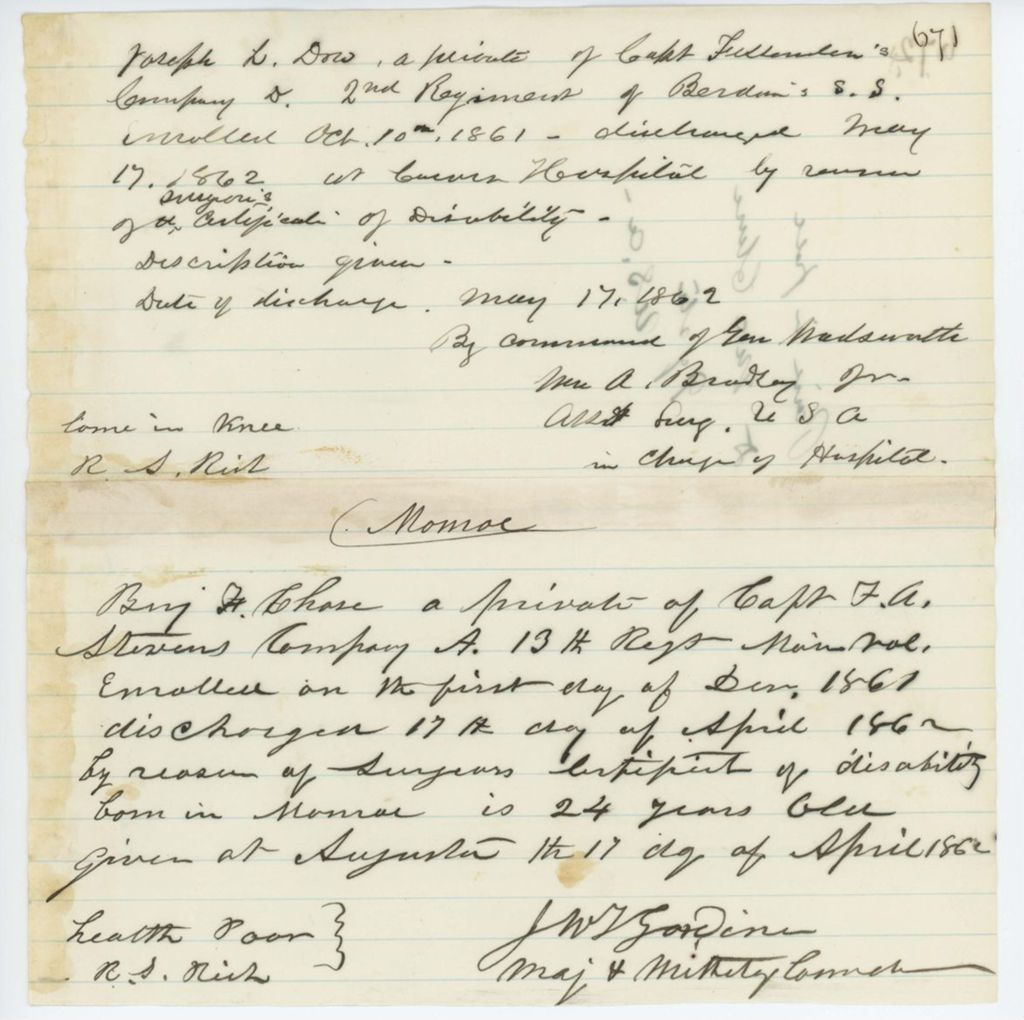 671
Joseph L. Dow, a private of Capt Fessenden's
Company D. 2nd Regiment of Berdan's S. S.
enrolled Oct. 10th, 1861 - discharged May
17. 1862 at Hospital by reason
surgeon's
of the Certificate of Disability -
Description given -
Date of discharge. May 17, 1862
By command of Gen Wadsworth
Wm A. Bradley Jr.
Asst Surg. U S A
in charge of Hospital.
lame in Knee
R. S. Rich
Monroe
Benj F. Chase a private of Capt F. A.
Stevens Company A. 13th Regt Main vol.
Enrolled on th first day of Dec. 1861
discharged 17th day of April 1862
by reason of Surgeons of disability
born in Monroe is 24 years Old
given at Augusta th 17 day of April 1862
health Poor
R. S. Rich
J W T Gardiner
Maj &